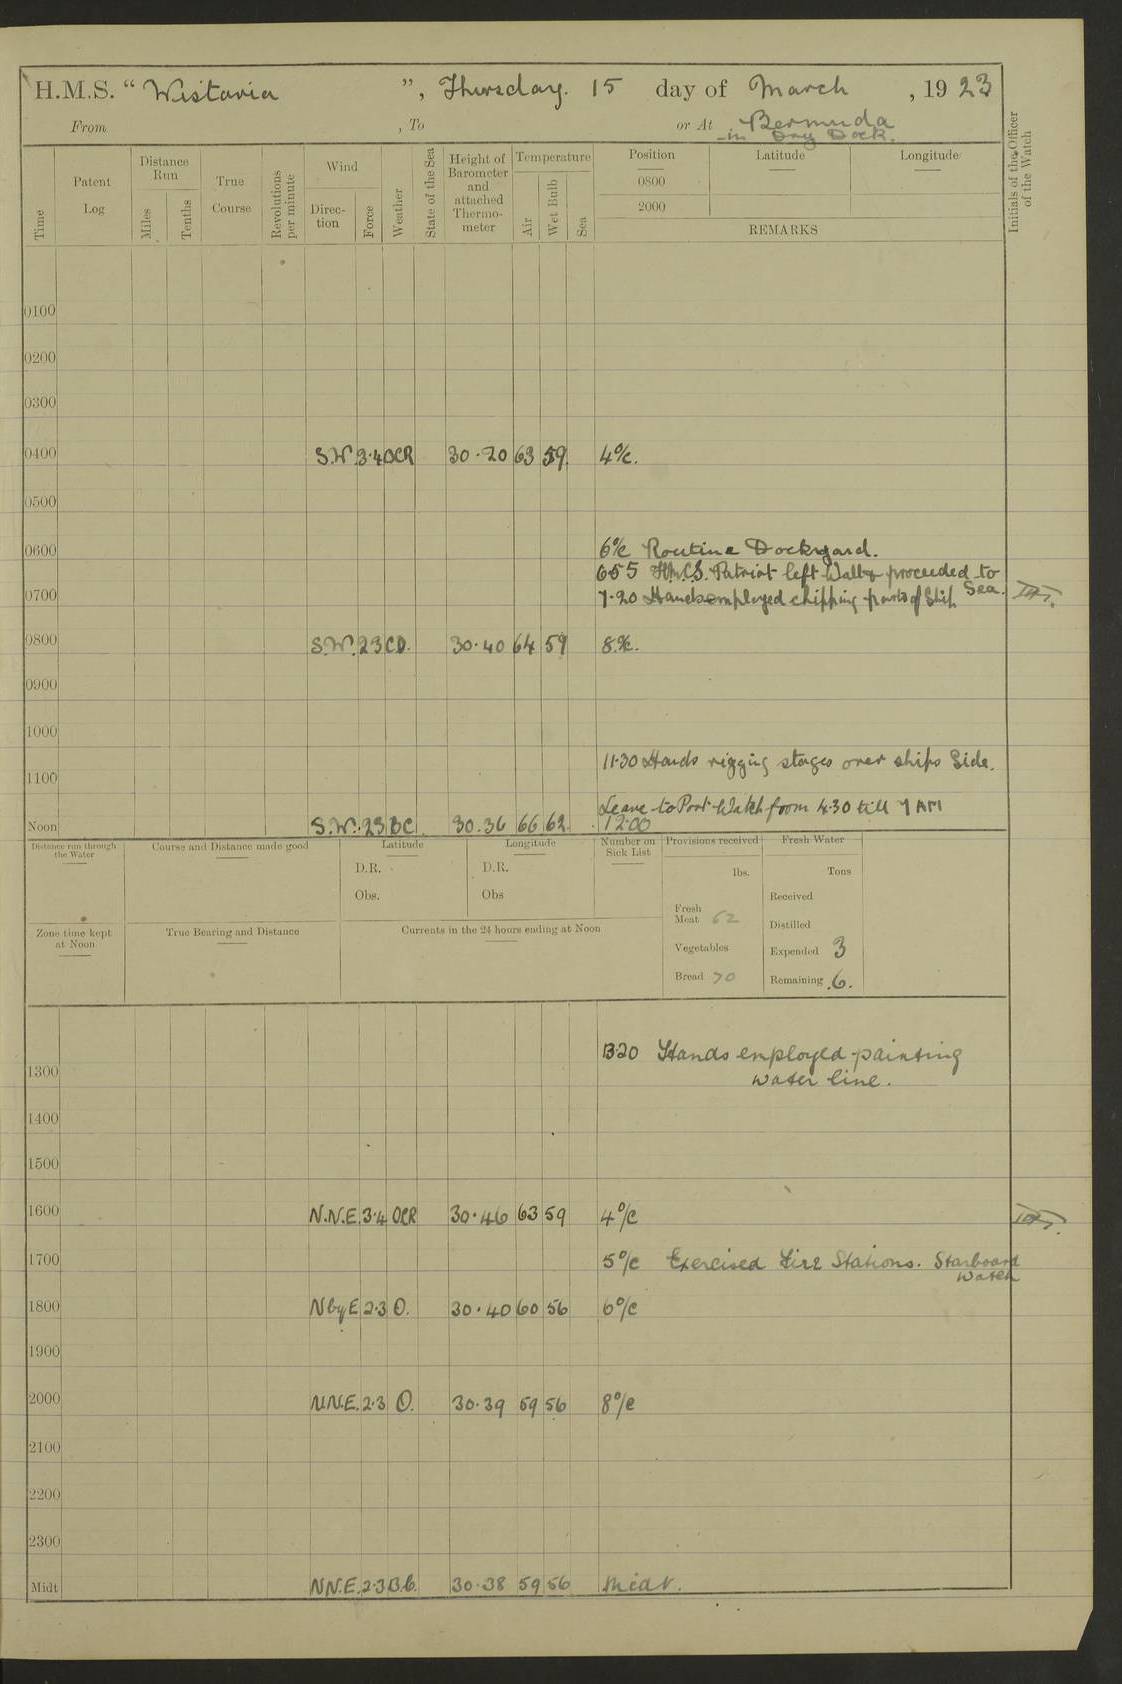 H.M.S. "Wistaria", Thursday. 15 day of March, 1923
From , To or At Bermuda
in Dry Dock.
Time
Patent Log
Distance Run
Miles
Tenths
True Course
Revolutions per minute
Wind
Direction
Force
Weather
State of the Sea
Height of Barometer and attached Thermometer
Temperature
Air
Wet Bulb
Sea
Position Latitude Longitude
0800
2000
REMARKS
Initials of the Officer of the Watch
0100
0200
0300
0400 S.W. 3·4 OCR 30·20 63 59. 4 o/c.
0500
0600 6 o/c Routine Dockyard.
655 H.M.C.S. Patriot left Wall & proceeded to Sea.
0700 7·20 Hands employed chipping parts of Ship
0800 S.W. 23 CD. 30·40 64 59 8 o/c.
0900
1000
11·30 Hands rigging stages over ships Side.
1100
Leave to Port Watch from 4·30 till 7 AM
Noon S.W. 23 BC 30.36 66 62. 12·00
Distance run through the Water
Course and Distance made good
Latitude
D.R.
Obs.
Longitude
D.R.
Obs
Number on Sick List
Provisions received
lbs.
Fresh Meat 62
Vegetables
Bread 70
Fresh Water
Tons
Received
Distilled
Expended 3
Remaining .6.
Zone time kept at Noon
True Bearing and Distance
Currents in the 24 hours ending at Noon
1320 Hands employed painting
1300 water line.
1400
1500
1600 N.N.E. 3·4 OCR 30·46 63 59 4 o/c
1700 5 o/c Exercised Fire Stations. Starboard Watch
1800 N by E 2·3 O. 30·40 60 56 6 o/c
1900
2000 N.N.E. 2·3 O. 30·39 59 56 8 o/c
2100
2200
2300
Midt N.N.E. 2·3 B.C. 30·38 59 56 Midt.